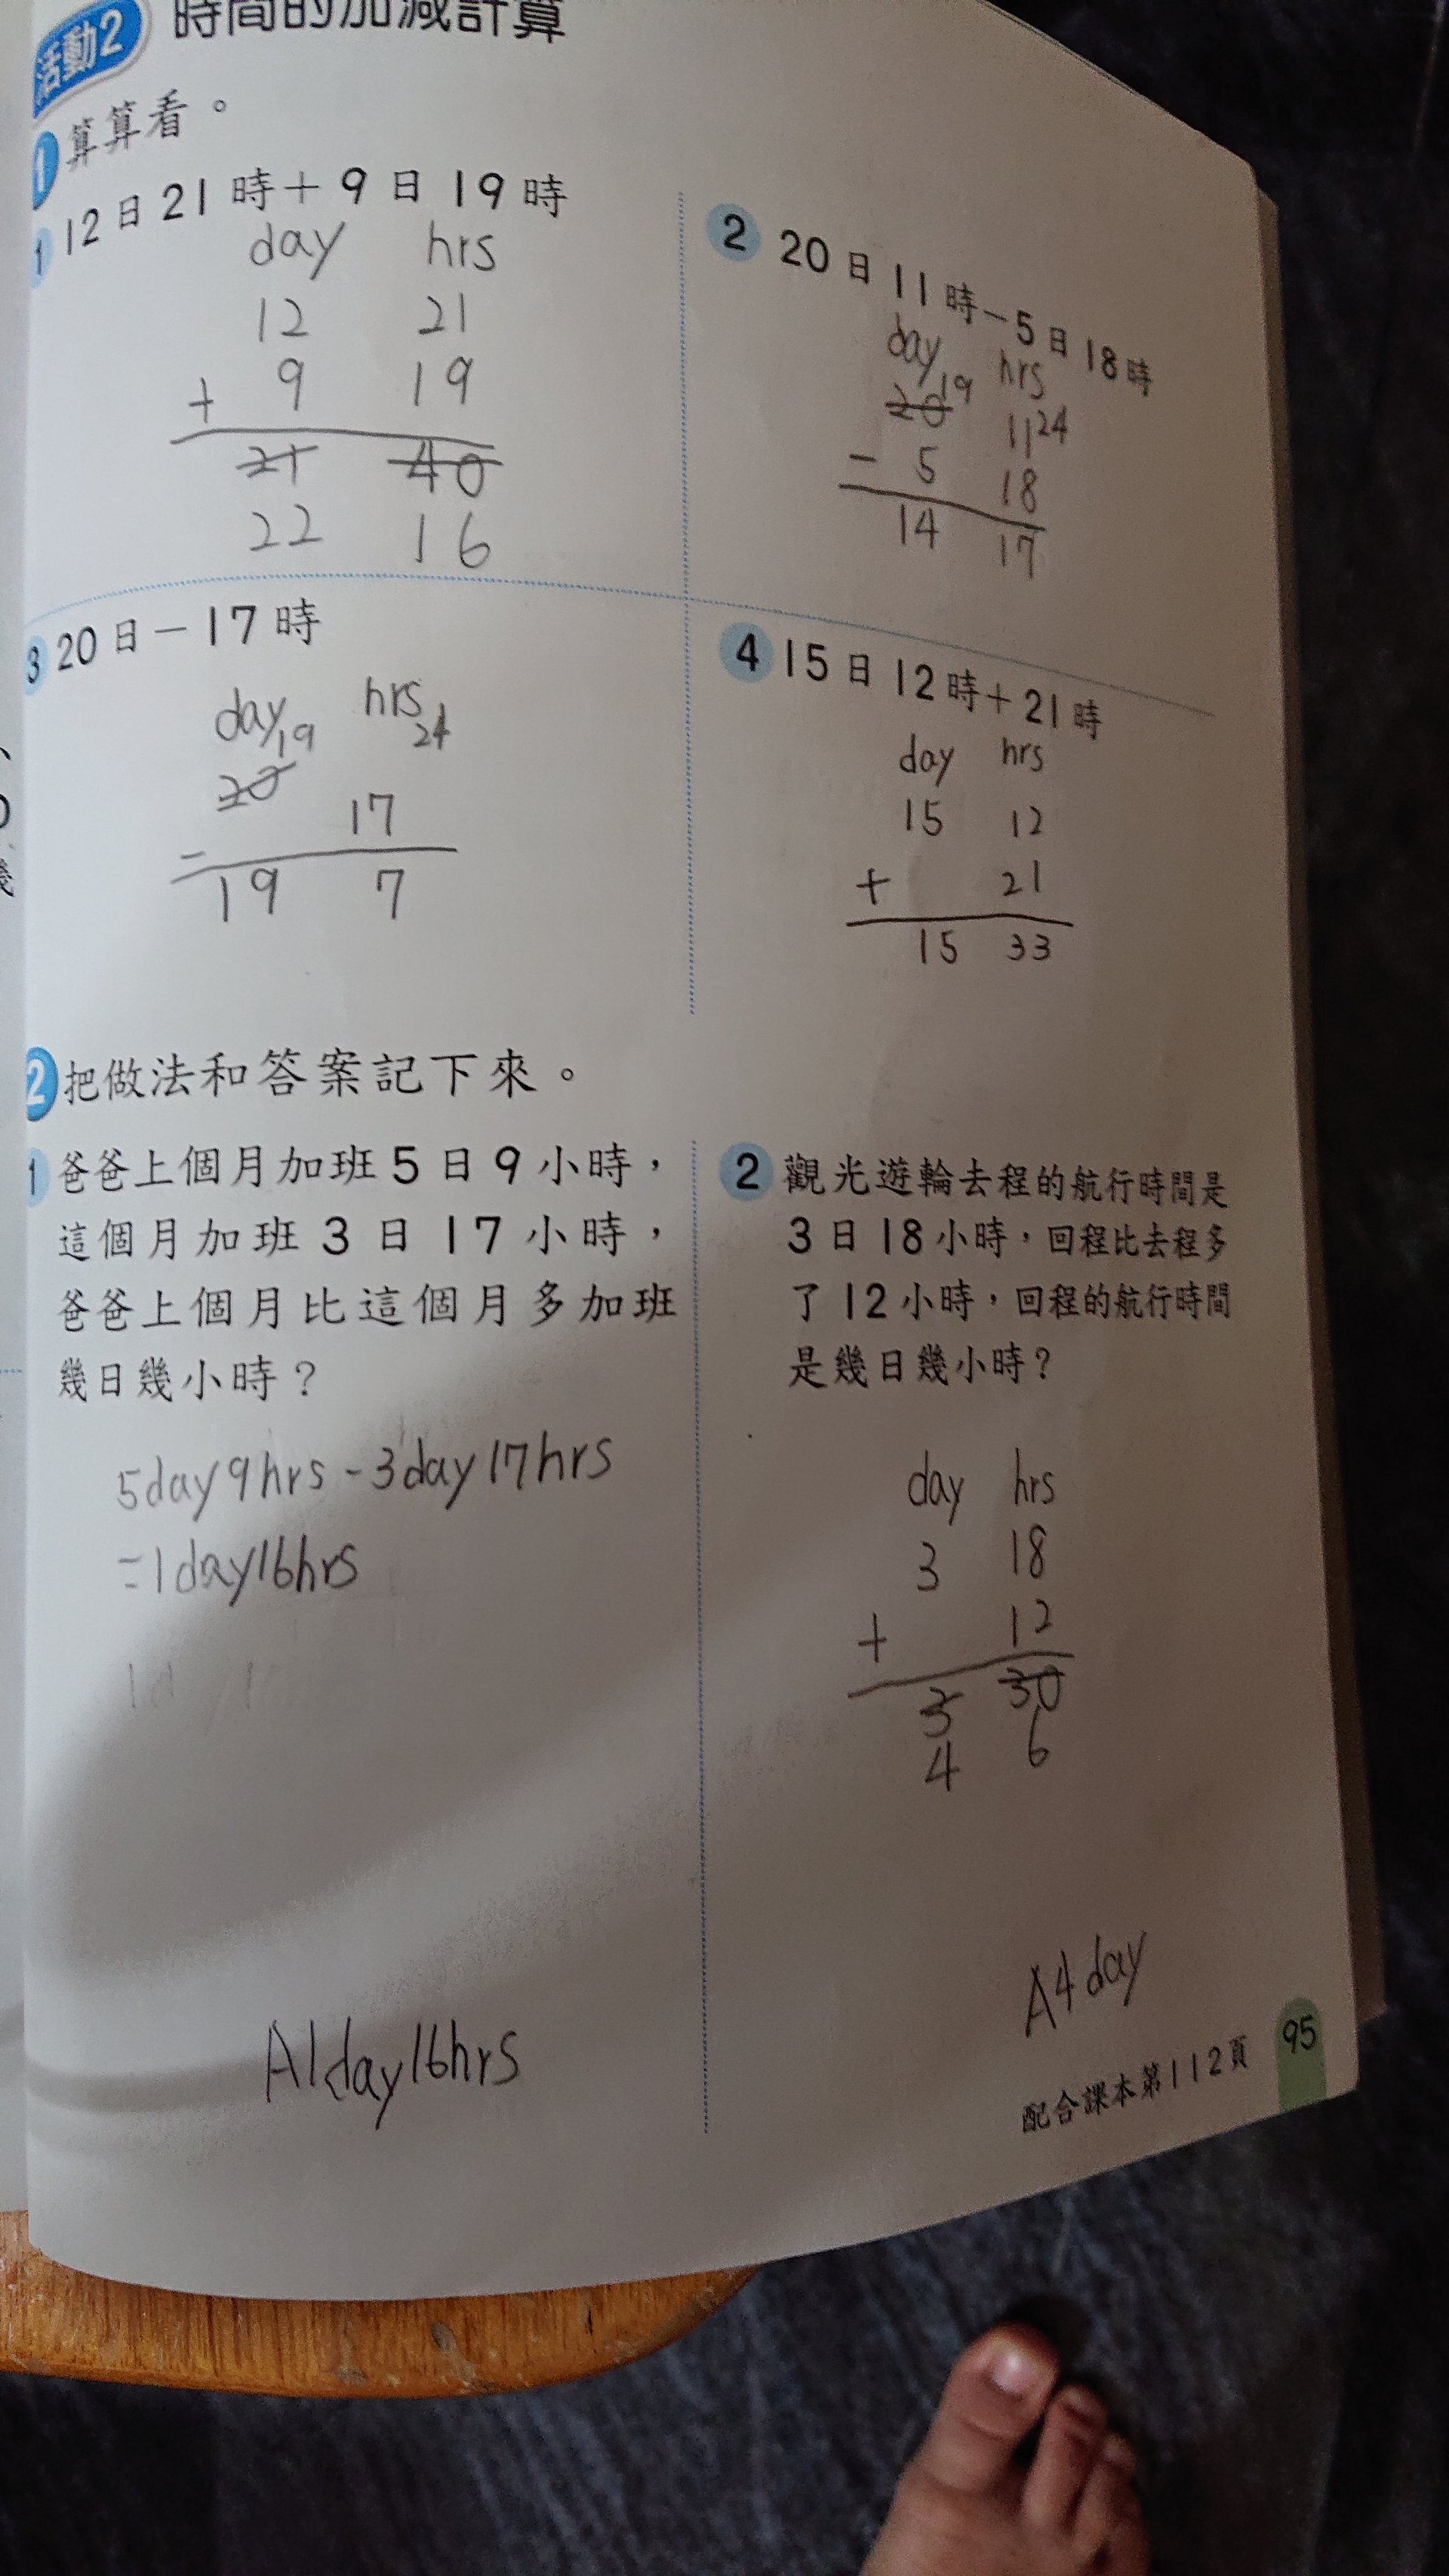 活動2 時間的加減計算
1 算算看。
1 12日21時+9日19時
day hrs
12 21
+ 9 19
21 40
22 16
2 20日11時-5日18時
day hrs
20 19 11 24
- 5 18
14 17
3 20日-17時
day hrs
19 24
20
- 17
19 7
4 15日12時+21時
day hrs
15 12
+ 21
15 33
2 把做法和答案記下來。
1 爸爸上個月加班5日9小時,
這個月加班3日17小時,
爸爸上個月比這個月多加班
幾日幾小時?
5day9hrs-3day17hrs
=1day16hrs
A1day16hrs
2 觀光遊輪去程的航行時間是
3日18小時,回程比去程多
了12小時,回程的航行時間
是幾日幾小時?
day hrs
3 18
+ 12
3 30
4 6
A4day
配合課本第112頁 95